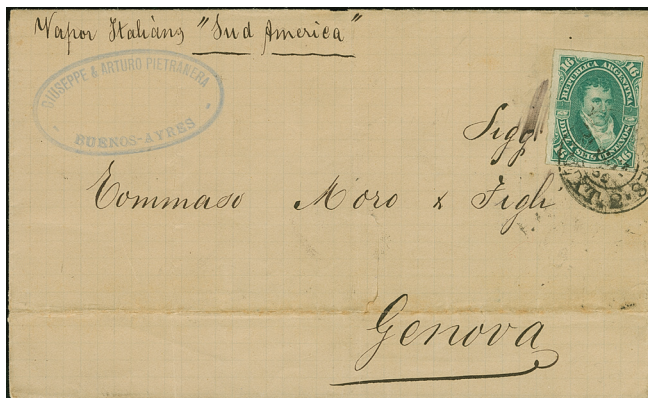 Vapor Italiano "Sud America"
GIUSEPPE & ARTURO PIETRANERA
BUENOS-AYRES
16 REPUBLICA ARGENTINA 16
16 DIEZ Y SEIS CENTAVOS 16
Sigg
Tommaso Moro & Figli
Genova